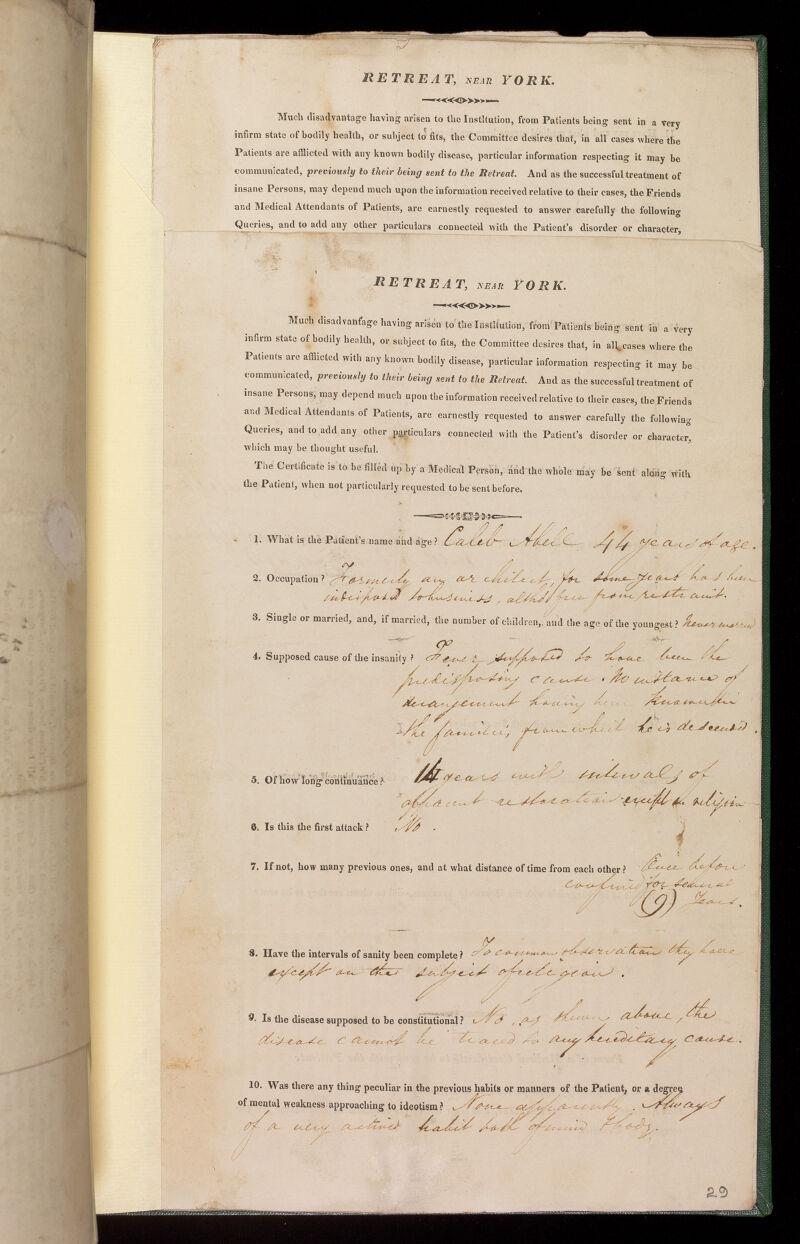 RETREAT, NEAR YORK.
Much disadvantage having arisen to the Institution, from Patients being sent in a very
infirm state of bodily health, or subject to fits, the Committee desires that, in all cases where the
Patients are afflicted with any known bodily disease, particular information respecting it may be
communicated, previously to their being sent to the Retreat. And as the successful treatment of
insane Persons, may depend much upon the information received relative to their cases, the Friends
and Medical Attendants of Patients, are earnestly requested to answer carefully the following
Queries, and to add any other particulars connected with the Patient's disorder or character,
RETREAT, NEAR YORK.
Much disadvantage having arisen to the Institution, from Patients being sent in a very
infirm state of bodily health, or subject to fits, the Committee desires that, in all cases where the
Patients are afflicted with any known bodily disease, particular information respecting it may be
communicated, previously to their being sent to the Retreat. And as the successful treatment of
insane Persons, may depend much upon the information received relative to their cases, the Friends
and Medical Attendants of Patients, are earnestly requested to answer carefully the following
Queries, and to add any other particulars connected with the Patient's disorder or character,
which may be thought useful.
The Certificate is to be filled up by a Medical Person, and the whole may be sent along with
the Patient, when not particularly requested to be sent before.
1. What is the Patient's name and age? Caleb Abell 44 years of age.
2. Occupation? Formerly an architect, for some years has been
indisposed to business, altho' free from restraint.
3. Single or married, and, if married, the number of children, and the age of the youngest? Never married
4. Supposed cause of the insanity? Fever supposed to have been the
predisposing cause. No instance of
derangement having been known in
the families, from which he is descended.
5. Of how long continuance? 14 years with intervals of
apparent restoration except on religion
6. Is this the first attack? No.
7. If not, how many previous ones, and at what distance of time from each other? Once before
confined for several
(9) Years.
8. Have the intervals of sanity been complete? To common observation they have
except on the subject of religion.
9. Is the disease supposed to be constitutional? No, as shewn above, the
disease cannot be traced to any hereditary cause.
10. Was there any thing peculiar in the previous habits or manners of the Patient, or a degree
of mental weakness approaching to ideotism? None apparently. Always
of a very active habit both of mind & body.
29